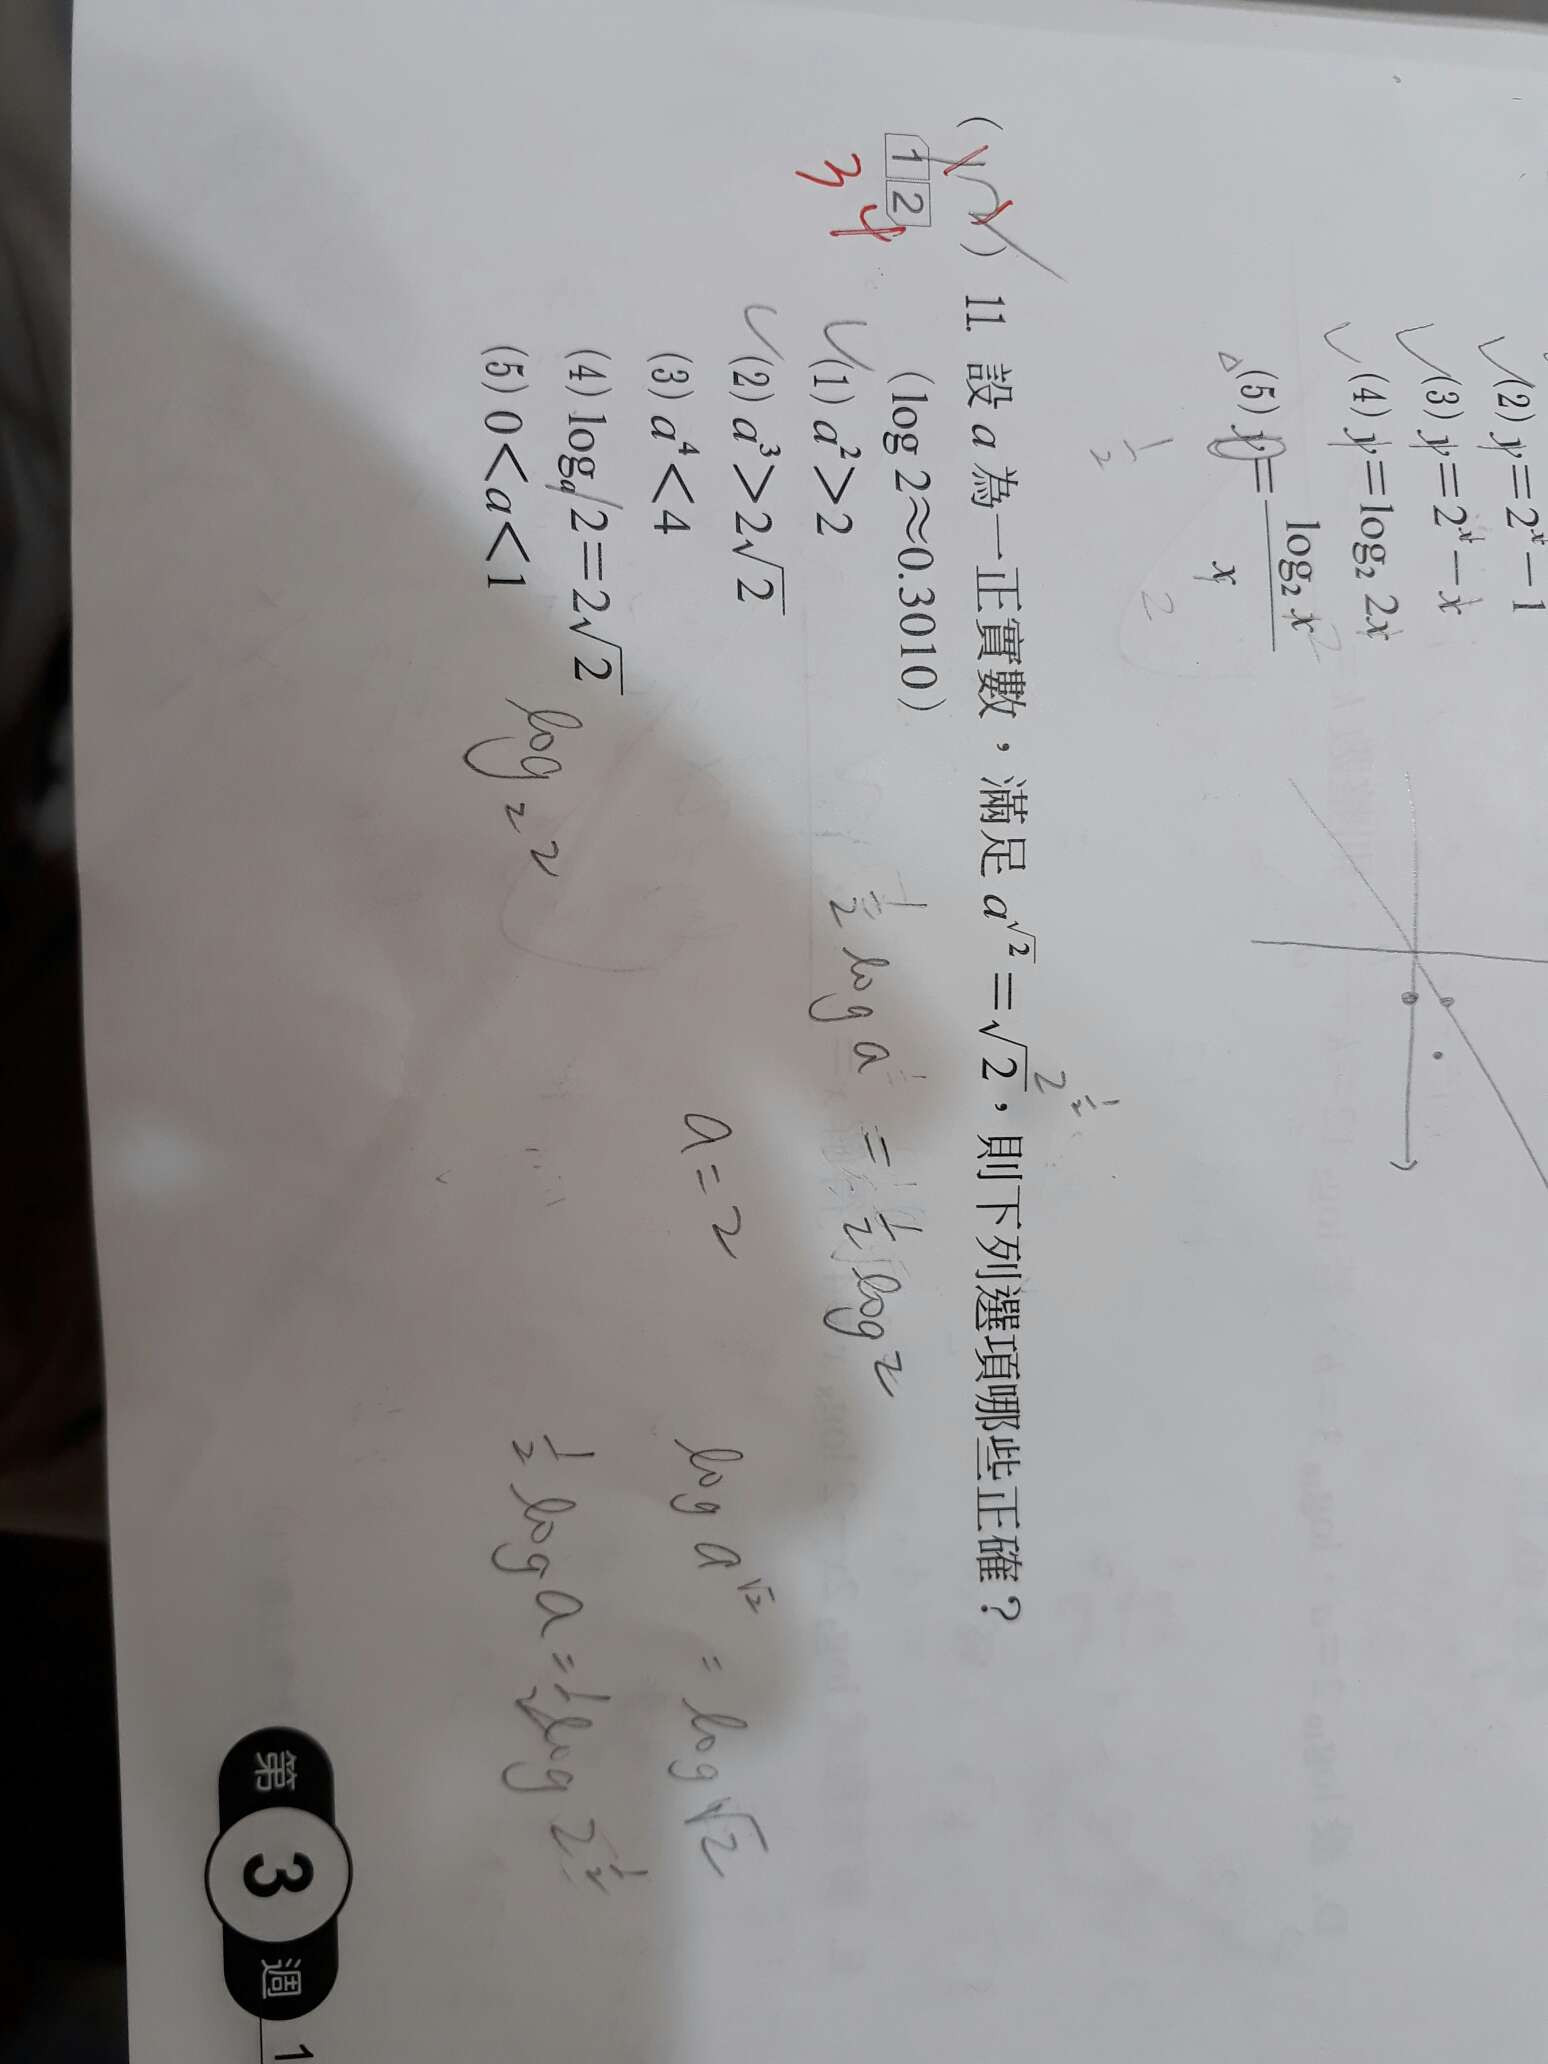 (2) y=2^x-1
(3) y=2^x-x
(4) y=log₂ 2x
(5) y=log₂ x / x
1/2
2
( 1 2 ) 11. 設 a 為一正實數，滿足 a^√2=√2，則下列選項哪些正確？
2^1/2
1 2
3 4
(log 2≈0.3010)
(1) a²>2
(2) a³>2√2
(3) a⁴<4
(4) logₐ 2=2√2
(5) 0<a<1
1/2 log a = 1/2 log 2
a=2
log a^√2 = log √2
log₂ 2
1/2 log a = 1/2 log 2^1/2
第 3 週 1